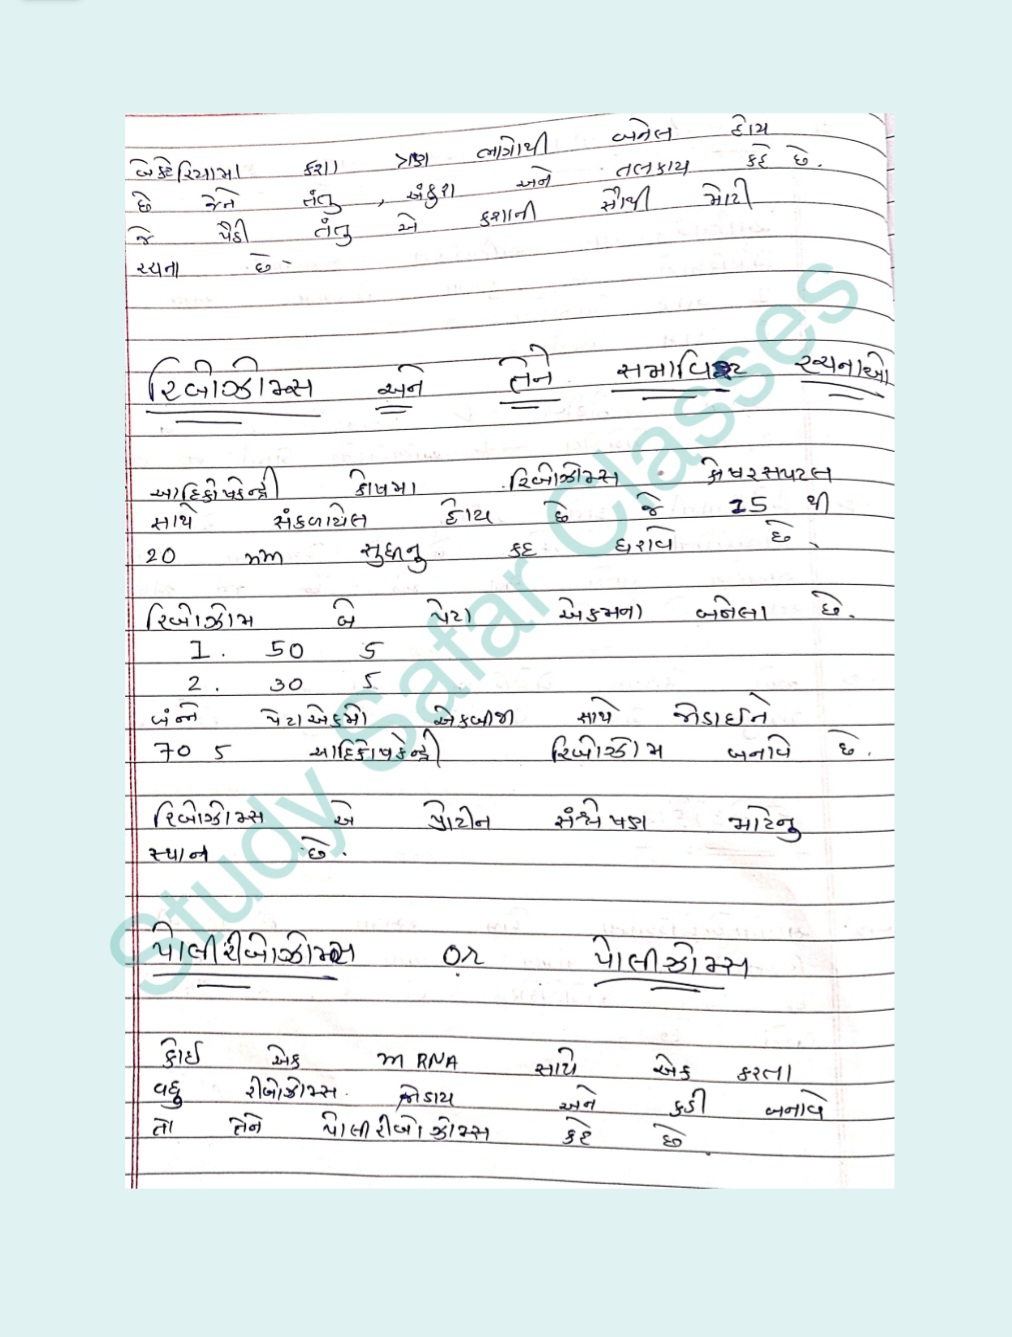 બેક્ટેરિયામા કશા ત્રણ ભાગોથી બનેલ હોય
છે જેને તંતુ , અંકુશ અને તલકાય કહે છે.
જે પૈકી તંતુ એ કશાની સૌથી મોટી
રચના છે -
રિબોઝોમ્સ અને તેને સમાવિષ્ટ રચનાઓ
આદિકોષકેન્દ્રી કોષમા રિબોઝોમ્સ કોષરસપટલ
સાથે સંકળાયેલ હોય છે જે 15 થી
20 mm સુધીનુ કદ ધરાવે છે.
રિબોઝોમ બે પેટા એકમના બનેલા છે.
1. 50 S
2. 30 S
બંન્ને પેટાએકમો એકબીજા સાથે જોડાઈને
70 S આદિકોષકેન્દ્રી રિબોઝોમ બનાવે છે.
રિબોઝોમ્સ એ પ્રોટીન સંશ્લેષણ માટેનુ
સ્થાન છે.
પોલીરીબોઝોમ્સ or પોલીઝોમ્સ
કોઈ એક m RNA સાથે એક કરતા
વધુ રીબોઝોમ્સ જોડાય અને કડી બનાવે
તો તેને પોલીરીબોઝોમ્સ કહે છે.
Study Safar Classes